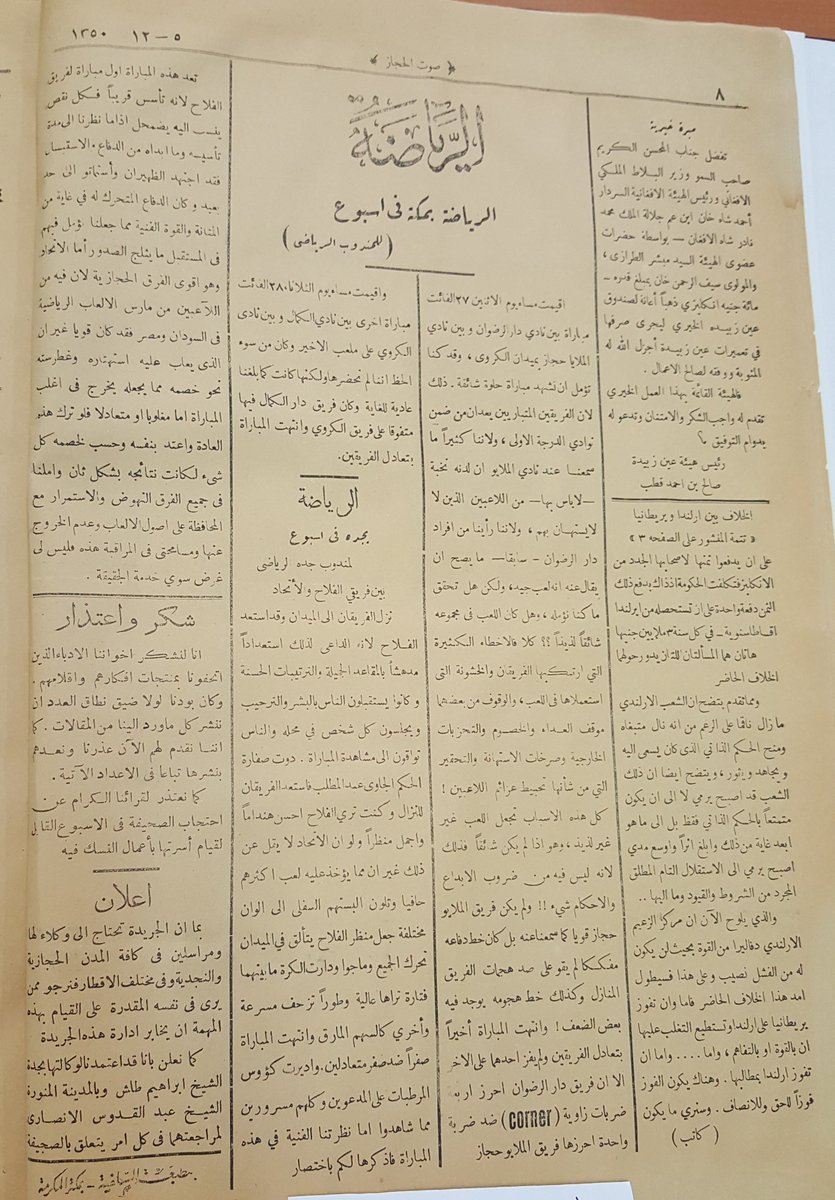 ٥ – ١٢ ١٣٥٠
﴿ صوت الحجاز ﴾
٨
مبرة خيرية
تفضل جناب المحسن الكريم
صاحب السمو وزير البلاط الملكي
الافغاني ورئيس الهيئة الافغانية السردار
أحمد شاه خان ابن عم جلالة الملك محمد
نادر شاه الافغان — بواسطة حضرات
عضوى الهيئة السيد مبشر الطرازى ،
والمولوى سيف الرحمن خان بمبلغ قدره —
مائة جنيه انكليزي ذهباً أعانة لصندوق
عين زبيده الخيري ليجرى صرفها
في تعميرات عين زبيدة أجزل الله له
المثوبة ووفقه لصالح الاعمال .
فالهيئة القائمة بهذا العمل الخيري
تقدم له واجب الشكر والامتنان وتدعو له
بدوام التوفيق ؟
رئيس هيئة عين زبيدة
صالح بن احمد قطب
الخلاف بين ارلندا وبريطانيا
« تتمة المنشور على الصفحه ٣ »
على ان يدفعوا ثمنها لاصحابها الجدد من
الانكليز فتكلفت الحكومة اذ ذاك بدفع ذلك
الثمن دفعة واحدة على أن تستحصله من ايرلندا
اقساطا سنوية – في كل سنة ٣ ملايين جنيها
هاتان هما المسألتان اللتان يدور حولهما
الخلاف الحاضر
ومما تقدم يتضح ان الشعب الارلندي
ما زال ناقماً على الرغم من انه نال مبتغاه
ومنح الحكم الذاتي الذى كان يسعى اليه
ويجاهد ويثور ، ويتضح ايضا ان ذلك
الشعب قد اصبح يرمي لا الى ان يكون
متمتعاً بالحكم الذاتي فقط بل الى ما هو
ابعد غاية من ذلك وابلغ اثراً واوسع مدي
اصبح يرمي الى الاستقلال التام المطلق
المجرد من الشروط والقيود وما اليها ..
والذي يلوح الآن ان مركز الزعيم
الارلندي دفاليرا من القوة بحيث لن يكون
له من الفشل نصيب وعلى هذا فسيطول
امد هذا الخلاف الحاضر فاما وان تفوز
بريطانيا على ارلندا وتستطيع التغلب عليها
ان بالقوة او بالتفاهم ، واما .... واما ان
تفوز ارلندا بمطالبها . وهناك يكون الفوز
فوزاً للحق وللانصاف . وسنري ما يكون
( كاتب )
الرياضة
الرياضة بمكة فى اسبوع
( للمندوب الرياضى )
اقيمت مساء يوم الاثنين ٢٧ الفائت
مباراة بين نادي دار الرضوان وبين نادي
الملايا حجاز بميدان الكروى ، وقد كنا
نؤمل ان نشهد مباراة حلوة شائقة . ذلك
لان الفريقين المتباريين يعدان من ضمن
نوادي الدرجة الاولى ، ولاننا كثيراً ما
سمعنا عند نادي الملايو ان لدنه نخبة
—لاباس بها— من اللاعبين الذين لا
لايستهان بهم ، ولاننا رأينا من افراد
دار الرضوان – سابقاً – ما يصح ان
يقال عنه انه لعب جيد ، ولكن هل تحقق
ما كنا نؤمله ، وهل كان اللعب في مجموعه
شائقاً لذيذاً ؟؟ كلا فالاخطاء الكثيرة
التي ارتكبها الفريقان والخشونة التى
استعملاها فى اللعب ، والوقوف من بعضهما
موقف العداء والخصوم والتحزبات
الخارجية وصرخات الاستهانة والتحقير
التي من شأنها تحبيط عزائم اللاعبين !
كل هذه الاسباب تجعل اللعب غير
غير لذيذ ، وهو اذا لم يكن شائقاً فذلك
لانه ليس فيه من ضروب الابداع
والاحكام شيء !! ولم يكن فريق الملايو
حجاز قويا كما سمعنا عنه بل كان خط دفاعه
مفككا لم يقو على صد هجمات الفريق
المنازل وكذلك خط هجومه يوجد فيه
بعض الضعف ! وانتهت المباراة أخيراً
بتعادل الفريقين ولم يفز احدهما على الاخر
الا ان فريق دار الرضوان احرز اربع
ضربات زاوية ( corner ) ضد ضربة
واحدة احرزها فريق الملايو حجاز
واقيمت مساء يوم الثلاثاء ٢٨ الفائت
مباراة اخرى بين نادي الكمال وبين نادى
الكروي على ملعب الاخير وكان من سوء
الحظ اننا لم نحضرها ولكنها كانت كما بلغنا
عادية للغاية وكان فريق دار الكمال فيها
متفوقا على فريق الكروي وانتهت المباراة
بتعادل الفريقين .
الرياضة
بجده فى اسبوع
لمندوب جده الرياضى
بين فريقي الفلاح والأتحاد
نزل الفريقان الى الميدان وقد استعد
الفلاح لانه الداعى لذلك استعداداً
مدهشاً بالمقاعد الجميلة والترتيبات الحسنة
وكانوا يستقبلون الناس بالبشر والترحيب
ويجلسون كل شخص في محله والناس
تواقون الى مشاهدة المباراة . دوت صفارة
الحكم الجاوى عبد المطلب فاستعد الفريقان
للنزال وكنت تري الفلاح احسن هنداماً
واجمل منظراً ولو ان الاتحاد لا يقل عن
ذلك غير ان مما يؤخذ عليه لعب اكثرهم
حافيا وتلون البستهم السفلى الى الوان
مختلفة جعل منظر الفلاح يتألق في الميدان
تحرك الجميع وماجوا ودارت الكرة ما بينهما
فتارة تراها عالية وطوراً تزحف مسرعة
وأخري كالسهم المارق وانتهت المباراة
صفراً ضد صفر متعادلين . واديرت كؤوس
المرطبات على المدعوين وكلهم مسرورين
مما شاهدوا اما نظرتنا الفنية في هذه
المباراة فاذكرها لكم باختصار
تعد هذه المباراة اول مباراة لفريق
الفلاح لانه تأسس قريباً فكل نقص
ينسب اليه يضمحل اذا ما نظرنا الى مدة
تأسيسه وما ابداه من الدفاع . الاستبسال
فقد اجتهد الظهيران وأستماتو الى حد
بعيد وكان الدفاع المتحرك له في غاية من
المتانة والقوة الفنية مما جعلنا نؤمل فيهم
فى المستقبل ما يثلج الصدور أما الأتحاد
وهو اقوى الفرق الحجازية لان فيه من
اللاعبين من مارس الالعاب الرياضية
فى السودان ومصر فقد كان قويا غير ان
الذى يعاب عليه استهتاره وغطرسته
نحو خصمه مما يجعله يخرج فى اغلب
المباراة اما مغلوبا او متعادلا فلو ترك هذه
العادة واعتد بنفسه وحسب لخصمه كل
شىء لكانت نتائجه بشكل ثان واملنا
فى جميع الفرق النهوض والاستمرار مع
المحافظة على اصول الالعاب وعدم الخروج
عنها ومسامحتى فى المراقبة هذه فليس لى
غرض سوي خدمة الحقيقة .
شكر واعتذار
انا لنشكر اخواننا الادباء الذين
اتحفونا بمنتجات افكارهم واقلامهم .
وكان بودنا لولا ضيق نطاق العدد ان
ننشر كل ما ورد الينا من المقالات . كما
اننا نقدم لهم الآن عذرنا ونعدهم
بنشرها تباعا فى الاعداد الآتية .
كما نعتذر لقرائنا الكرام عن
احتجاب الصحيفة فى الاسبوع التالى
لقيام أسرتها بأعمال النسك فيه
اعلان
بما ان الجريدة تحتاج الى وكلاء لها
ومراسلين فى كافة المدن الحجازية
والنجدية وفى مختلف الاقطار فنرجو ممن
يرى فى نفسه المقدرة على القيام بهذه
المهمة ان يخابر ادارة هذه الجريدة
كما نعلن بانا قد اعتمدنا لوكالتها بجدة
الشيخ ابراهيم طاش وبالمدينة المنورة
الشيخ عبد القدوس الانصارى
لمراجعتهما فى كل امر يتعلق بالصحيفة
بمكة المكرمة